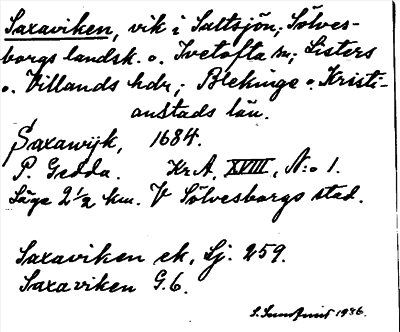 Saxaviken, vik i Saltsjön; Sölves-
borgs landsk. o. Ivetofta sn; Listers
o. Villands hdr; Blekinge o. Kristi-
anstads län.
Saxawijk, 1684.
P. Gedda. Kr.A. XVIII, N:o 1.
Läge 2 1/2 km. V Sölvesborgs stad.
Saxaviken ek, Lj. 259.
Saxaviken G.6.
S. Sundquist 1936.